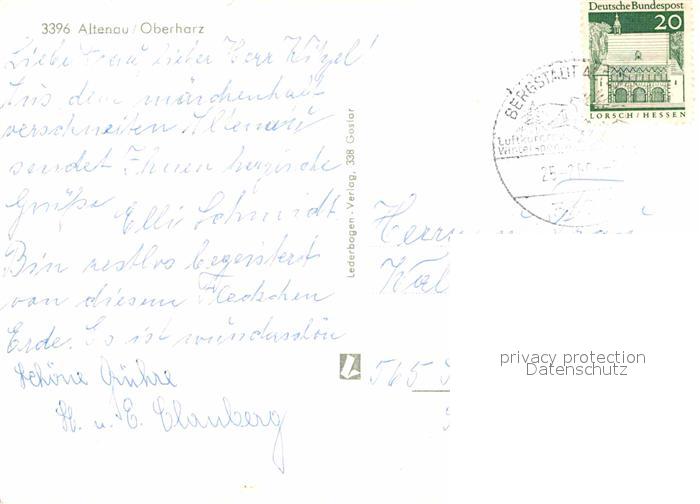 3396 Altenau/Oberharz
Liebe Frau, lieber Herr Kögel!
Aus dem märchenhaft
verschneiten Altenau
sendet Ihnen herzische
Grüße Elli Schmidt
Bin restlos begeistert
von diesem Fleckchen
Erde. Es ist wunderschön
Schöne Grühre
H. u. E. Clauberg
Lederbogen-Verlag, 338 Goslar
Deutsche Bundespost
20
LORSCH/HESSEN
BERGSTADT
Luftkurort
Winterspo
Herrn
565
privacy protection
Datenschutz